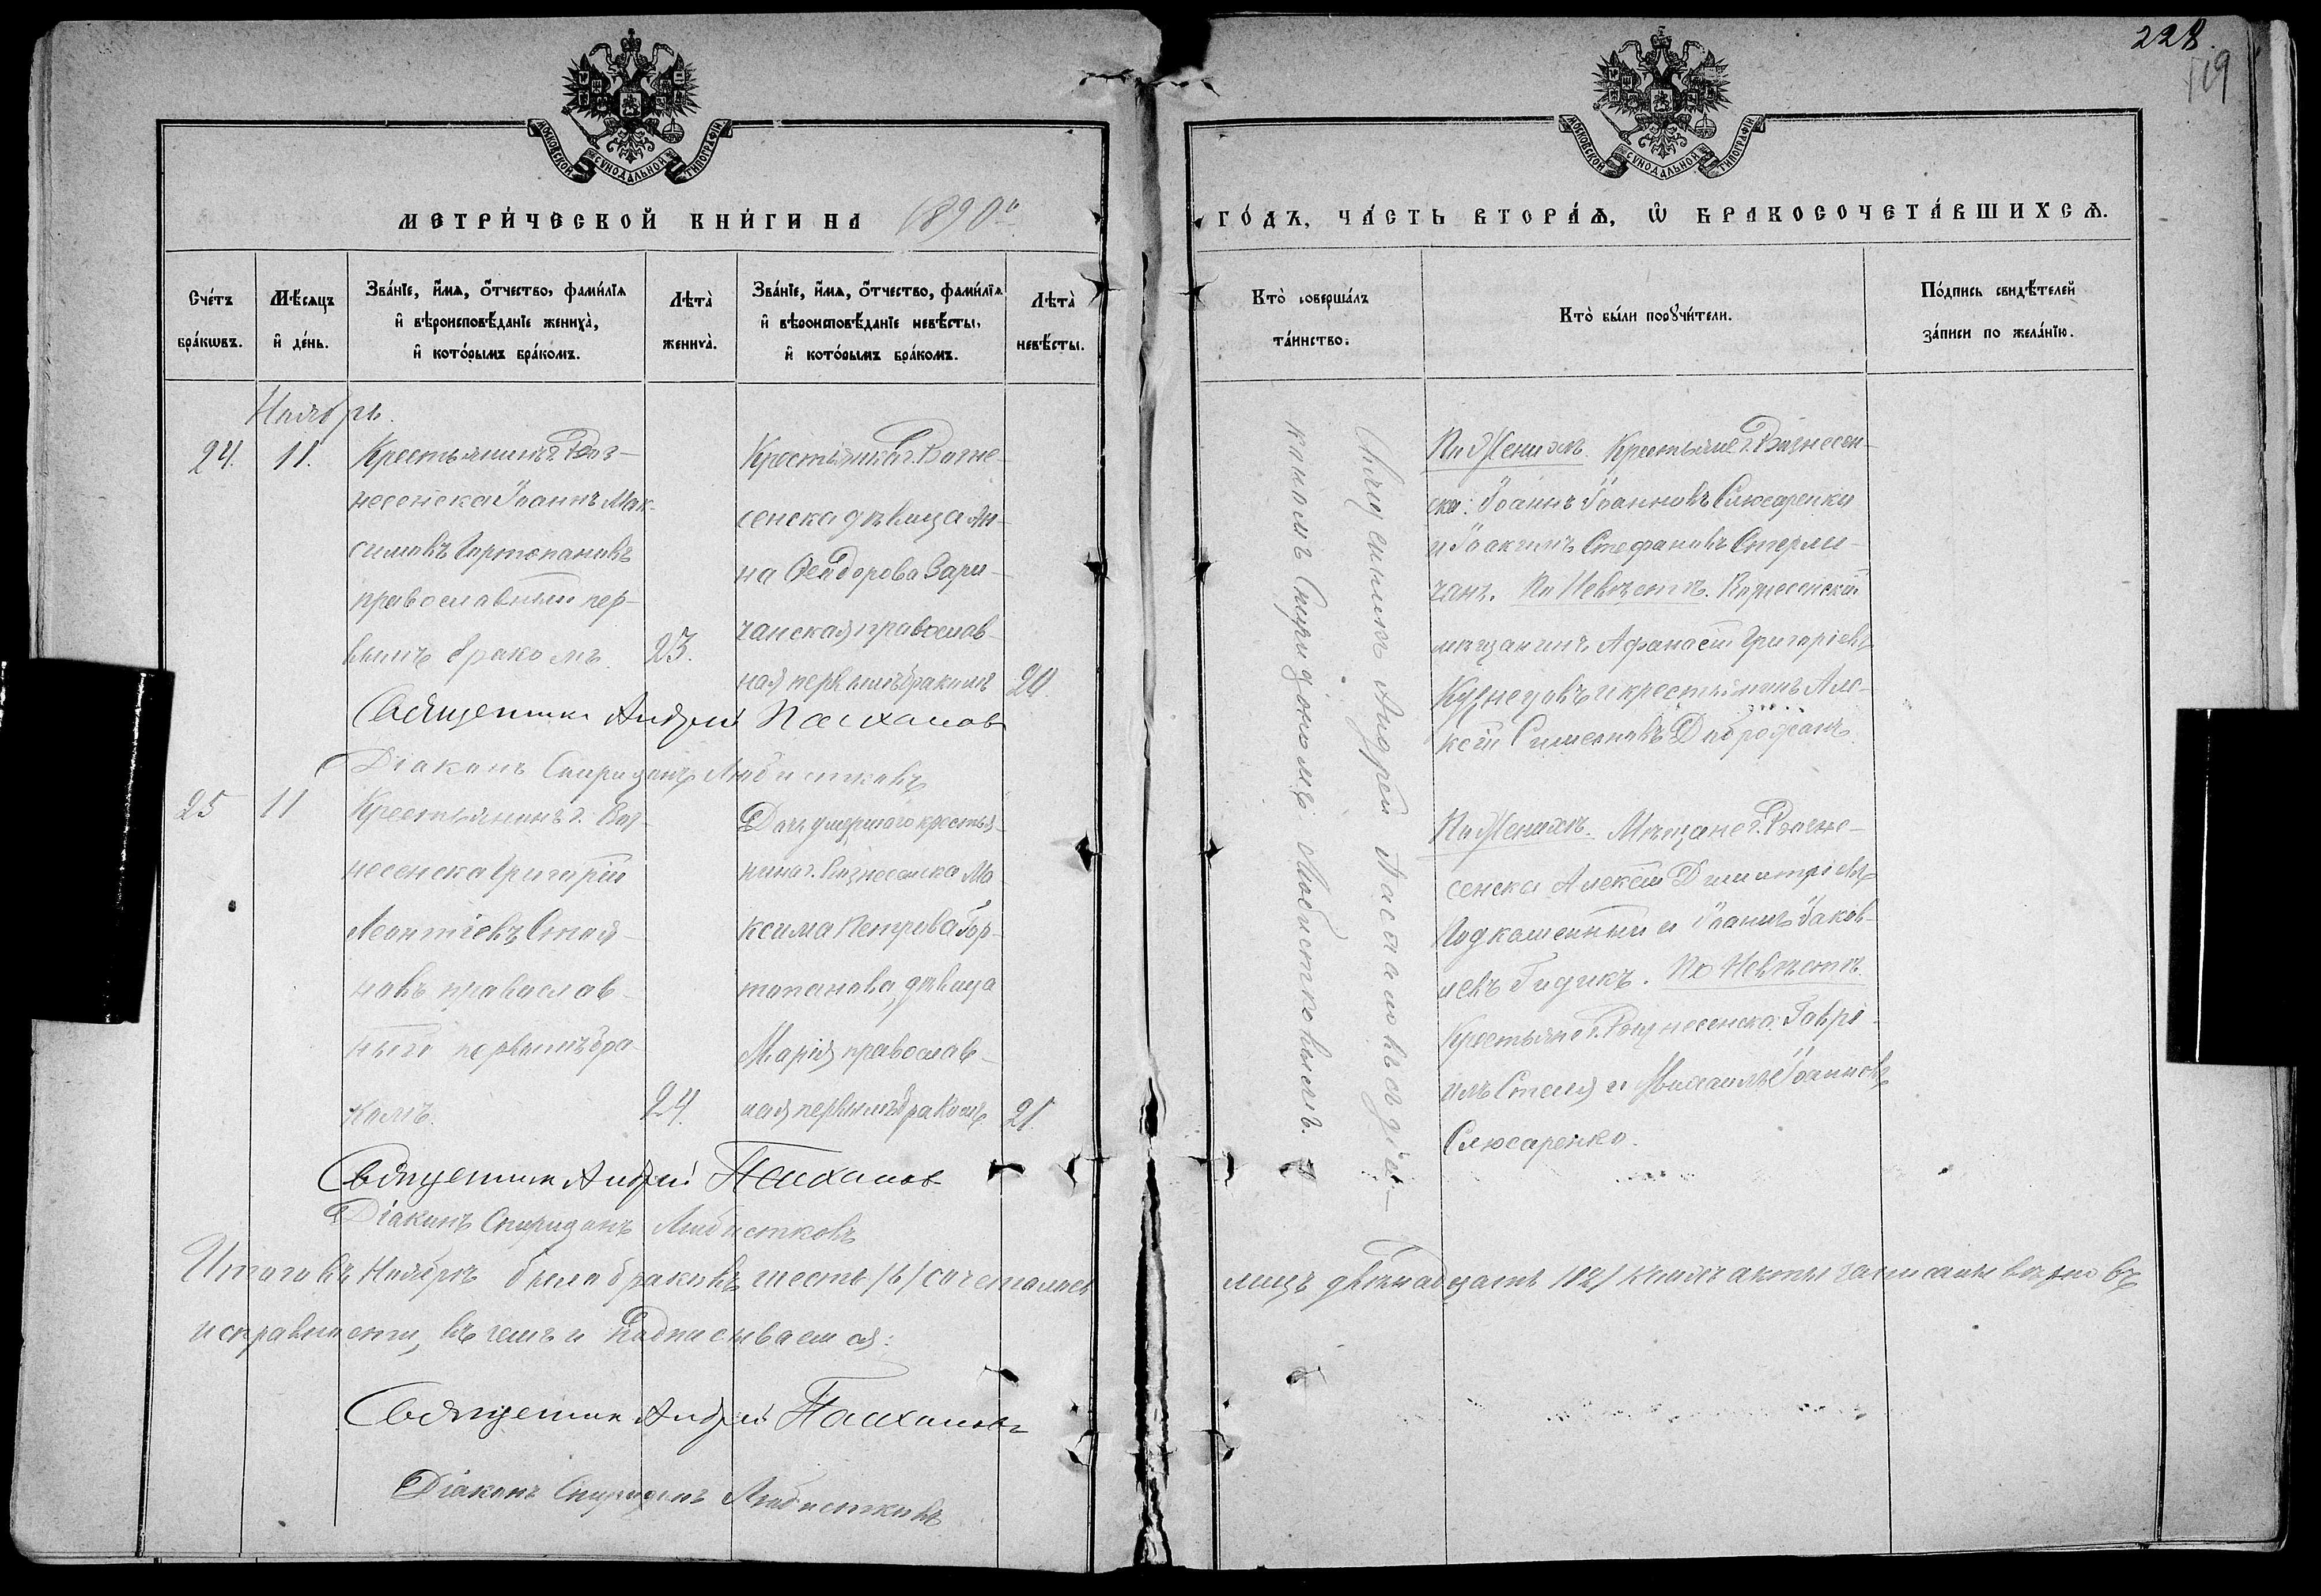 228
119
МОСКОВСКОЙ СѴНОДАЛЬНОЙ ТИПОГРАФІИ
МОСКОВСКОЙ СѴНОДАЛЬНОЙ ТИПОГРАФІИ
МЕТРИ́ЧЕСКОЙ КНИ́ГИ НА 1890й
ГО́ДЪ, ЧА́СТЬ ВТОРА́Ѧ, Ѽ БРАКОСОЧЕТА́ВШИХСѦ.
Сче́тъ бра́кωвъ.
Мѣ́сяцъ и҆ де́нь.
Зва́нїе, и҆́мѧ, ѻ҆́тчество, фами́лїѧ
и҆ вѣроисповѣ́данїе жениха̀,
и҆ кото́рымъ бра́комъ.
Лѣта̀ жениха̀.
Зва́нїе, и҆́мѧ, ѻ҆́тчество, фами́лїѧ
и҆ вѣроисповѣ́данїе невѣ́сты,
и҆ кото́рымъ бра́комъ.
Лѣта̀ невѣ́сты.
Кто̀ соверша́лъ
та́инство.
Кто̀ бы́ли порꙋчи́тели.
По́дпись свидѣ́телей
за́писи по жела́нїю.
Ноябрь.
24. 11.
Крестьянинъ г. Воз-
несенска Іоаннъ Мак-
симовъ Гортопановъ
православный пер-
вымъ бракомъ. 23.
Крестьянка г. Возне-
сенска дѣвица Ан-
на Ѳеодорова Зари-
чанская православ-
ная первымъ бракомъ 20.
Священникъ Андрей
Діаконъ Спиридонъ Любистковъ
По Женихѣ. Крестьяне г. Вознесен-
ска: Іоаннъ Іоанновъ Слюсаренко
и Іоакимъ Стефановъ
По Невѣстѣ. Вознесенскій
мѣщанинъ Аѳанасій Григоріевъ
Кузнецовъ и крестьянинъ Але-
ксѣй Симеоновъ Доброжанъ
Священникъ Андрей съ діа-
кономъ Спиридономъ Любистковымъ.
25 11
Крестьянинъ г. Воз-
несенска Григорій
Леонтіевъ Стоя-
новъ православ-
ный первымъ бра-
комъ. 24.
Дочь умершаго крестья-
нина г. Вознесенска Ма-
ксима Петрова Гор-
топанова, дѣвица
Марія православ-
ная первымъ бракомъ 21.
Священникъ Андрей
Діаконъ Спиридонъ Любистковъ
По Женихѣ. Мѣщане г. Возне-
сенска Алексѣй Димитріевъ
и Іоаннъ Іаков-
левъ Гидикъ. По Невѣстѣ.
Крестьяне г. Вознесенска: Гаврі-
илъ и Михаилъ Іоанновъ
Слюсаренко.
Итого въ Ноябрѣ было браковъ шесть /6/ сочеталось
лицъ двѣнадцать /12/ акты записаны вѣрно въ
исправности, въ чемъ и подписываемся:
Священникъ Андрей
Діаконъ Спиридонъ Любистковъ